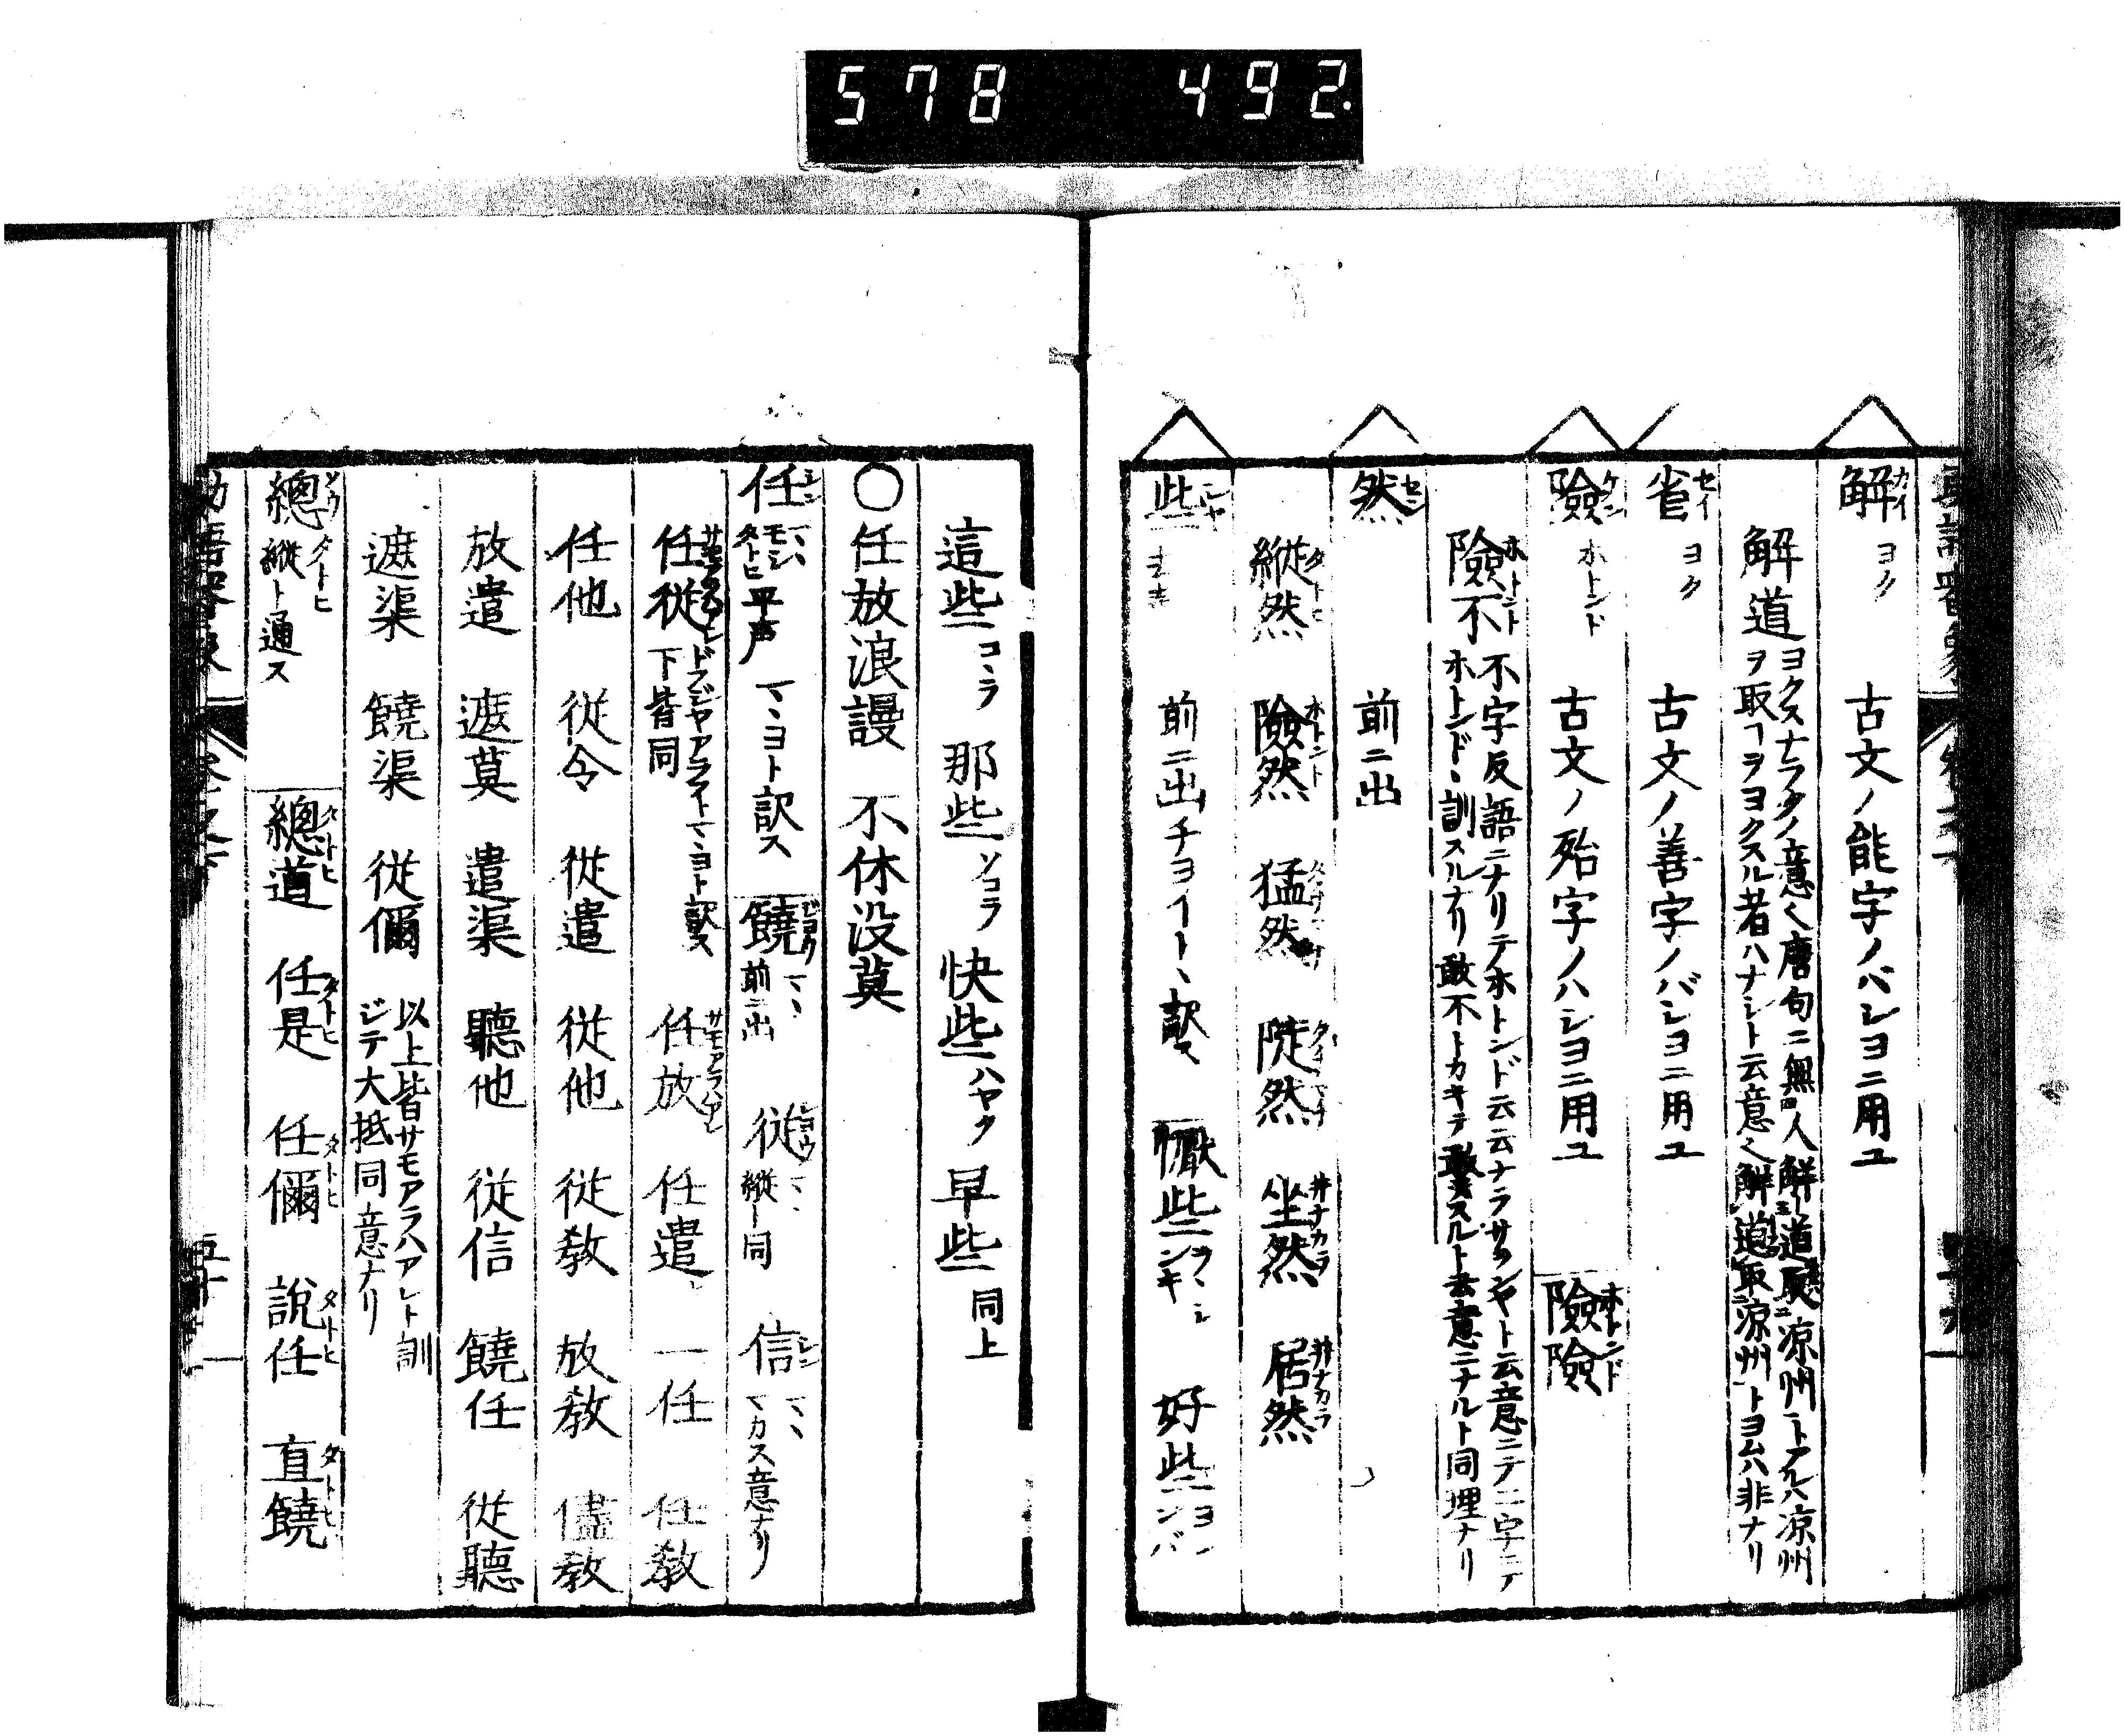 578 492.
解 カイ ヨク 古文ノ能字ノバシヨニ用ユ
解道 ヨクスナラフノ意也唐句ニ無人解道取凉州トアルハ凉州
ヲ取ヿヲヨクスル者ハナシト云意也解道取凉州トヨムハ非ナリ
省 セイ ヨク 古文ノ善字ノバシヨニ用ユ
險 ケン ホトンド 古文ノ殆字ノハシヨニ用ユ 險險 ホトンド
險不 ホトント 不字反語ニナリテホトンド云云ナラサランヤト云意ニテ二字ニテ
ホトンドヽ訓スルナリ敢不トカキテ敢スルト云意ニナルト同理ナリ
然 セン 前ニ出
縱然 タトヒ 險然 ホトント 猛然 陡然 坐然 井ナカラ 居然 井ナカラ
些 シヤ 前ニ出チヨイトヽ訳ス 懨些 好些
這些 コヽラ 那些 ソコラ 快些 ハヤク 早些 同上
○任放浪謾 不休没莫
任 ニン マヽ モシ タトヒ 平声 マヽヨト訳ス 饒 ジヨウ マヽ 前ニ出 從 シヨウ マヽ 縱ト同 信 シン マヽ マカス意ナリ
任從 下皆同 マヽヨト訳ス 任放 サモアラハアレ 任遣 一任 任教
任他 從令 從遣 從他 從教 放教 儘教
放遣 遮莫 遣渠 聽他 從信 饒任 從聽
遮渠 饒渠 從儞 以上皆サモアラハアレト訓
ジテ大抵同意ナリ
總 ソウ タトヒ 縱ト通ス 總道 タトヒ 任是 タトヒ 任儞 タトヒ 説任 タトヒ 直饒 タトヒ